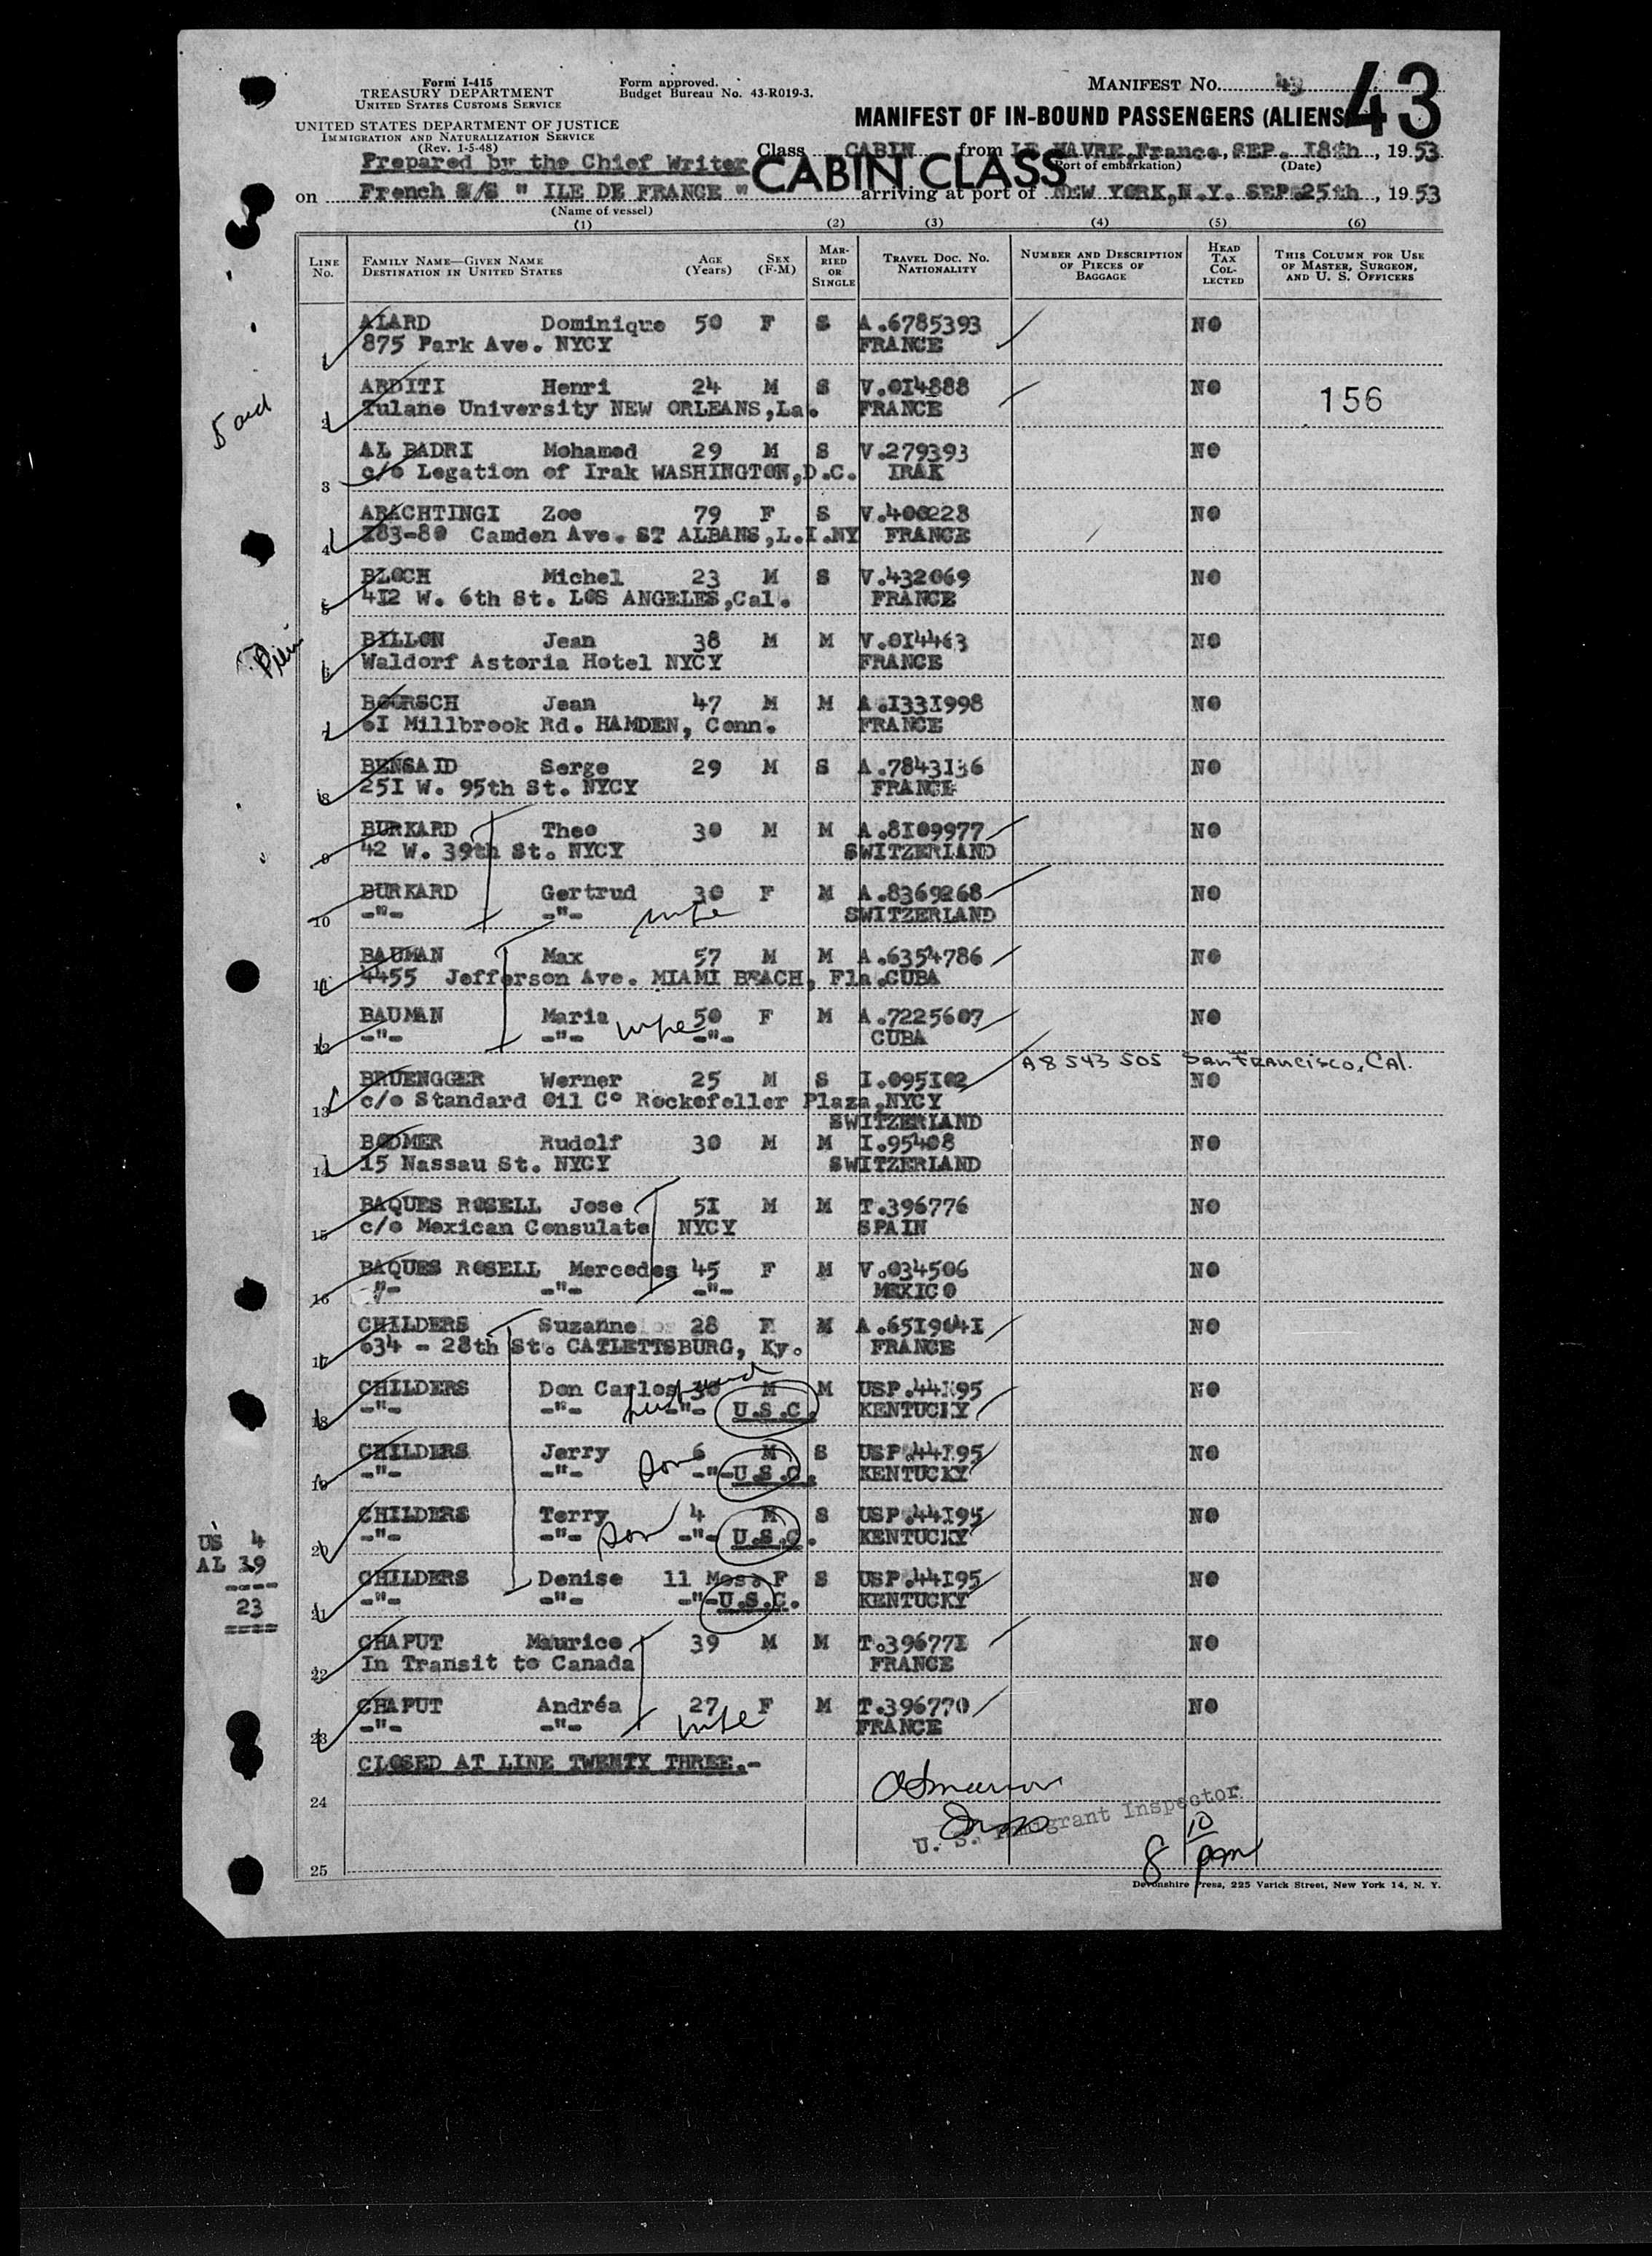 Form I-415
TREASURY DEPARTMENT
UNITED STATES CUSTOMS SERVICE
UNITED STATES DEPARTMENT OF JUSTICE
IMMIGRATION AND NATURALIZATION SERVICE
(Rev. 1-5-48)
Form approved.
Budget Bureau No. 43-R019-3.
MANIFEST NO. 43
43
MANIFEST OF IN-BOUND PASSENGERS (ALIENS)
Prepared by the Chief Writer
Class CABIN from LE HAVRE, France, SEP. I8th, 1953
(Port of embarkation) (Date)
CABIN CLASS
on French S/S " ILE DE FRANCE " arriving at port of NEW YORK, N.Y. SEP. 25th, 1953
(Name of vessel)
(1) (2) (3) (4) (5) (6)
LINE No. FAMILY NAME—GIVEN NAME DESTINATION IN UNITED STATES AGE (Years) SEX (F-M) MARRIED OR SINGLE TRAVEL DOC. NO. NATIONALITY NUMBER AND DESCRIPTION OF PIECES OF BAGGAGE HEAD TAX COLLECTED THIS COLUMN FOR USE OF MASTER, SURGEON, AND U. S. OFFICERS
ALARD Dominique 50 F S A.6785393 NO
1 875 Park Ave. NYCY FRANCE
ARDITI Henri 24 M S V.0I4888 NO 156
2 Tulane University NEW ORLEANS, La. FRANCE
AL BADRI Mohamed 29 M S V.279393 NO
3 c/o Legation of Irak WASHINGTON, D.C. IRAK
ARACHTINGI Zoe 79 F S V.400228 NO
4 I83-80 Camden Ave. ST ALBANS, L.I.NY FRANCE
BLOCH Michel 23 M S V.432069 NO
5 4I2 W. 6th St. LOS ANGELES, Cal. FRANCE
BILLON Jean 38 M M V.0I4463 NO
6 Waldorf Astoria Hotel NYCY FRANCE
BOORSCH Jean 47 M M A.I33I998 NO
7 6I Millbrook Rd. HAMDEN, Conn. FRANCE
BENSAID Serge 29 M S A.7843I36 NO
8 25I W. 95th St. NYCY FRANCE
BURKARD Theo 30 M M A.8I09977 NO
9 42 W. 39th St. NYCY SWITZERLAND
BURKARD Gertrud 30 F M A.8369268 NO
10 -"- -"- wife SWITZERLAND
BAUMAN Max 57 M M A.6354786 NO
11 4455 Jefferson Ave. MIAMI BEACH, Fla. CUBA
BAUMAN Maria wife 50 F M A.7225607 NO
12 -"- -"- -"- CUBA
A 8 543 505 San Francisco, Cal.
BRUENGGER Werner 25 M S I.095I02 NO
13 c/o Standard Oil C° Rockefeller Plaza, NYCY
SWITZERLAND
BODMER Rudolf 30 M M I.95408 NO
14 15 Nassau St. NYCY SWITZERLAND
BAQUES ROSELL Jose 5I M M T.396776 NO
15 c/o Mexican Consulate NYCY SPAIN
BAQUES ROSELL Mercedes 45 F M V.034506 NO
16 -"- -"- -"- MEXICO
CHILDERS Suzanne 28 F M A.65I964I NO
17 634 - 28th St. CATLETTSBURG, Ky. FRANCE
CHILDERS Don Carlos 30 M M USP.44I95 NO
18 -"- -"- husband -"- U.S.C. KENTUCKY
CHILDERS Jerry son 6 M S USP.44I95 NO
19 -"- -"- -"- U.S.C. KENTUCKY
CHILDERS Terry 4 M S USP.44I95 NO
20 -"- -"- son -"- U.S.C. KENTUCKY
CHILDERS Denise 11 Mos. F S USP.44I95 NO
21 -"- -"- -"- U.S.C. KENTUCKY
US 4
AL 19
----
23
====
CHAPUT Maurice 39 M M T.39677I NO
22 In Transit to Canada FRANCE
CHAPUT Andréa 27 F M T.396770 NO
23 -"- -"- wife FRANCE
CLOSED AT LINE TWENTY THREE.-
24
U. S. Immigrant Inspector
8 10 pm
25
Devonshire Press, 225 Varick Street, New York 14, N. Y.